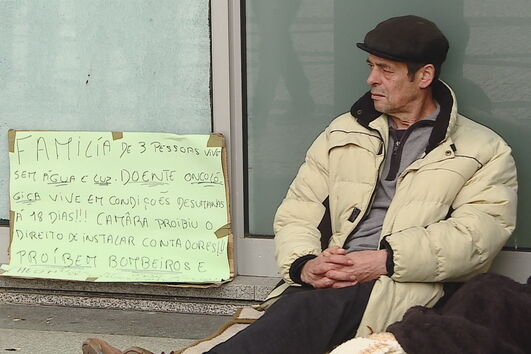 FAMÍLIA DE 3 PESSOAS VIVE
SEM ÁGUA E LUZ. DOENTE ONCOLÓ
GICA VIVE EM CONDIÇÕES DESUMANAS
Á 18 DIAS!!! CAMÂRA PROIBIU O
DIREITO DE INSTALAR CONTADORES!!
PROÍBEM BOMBEIROS E